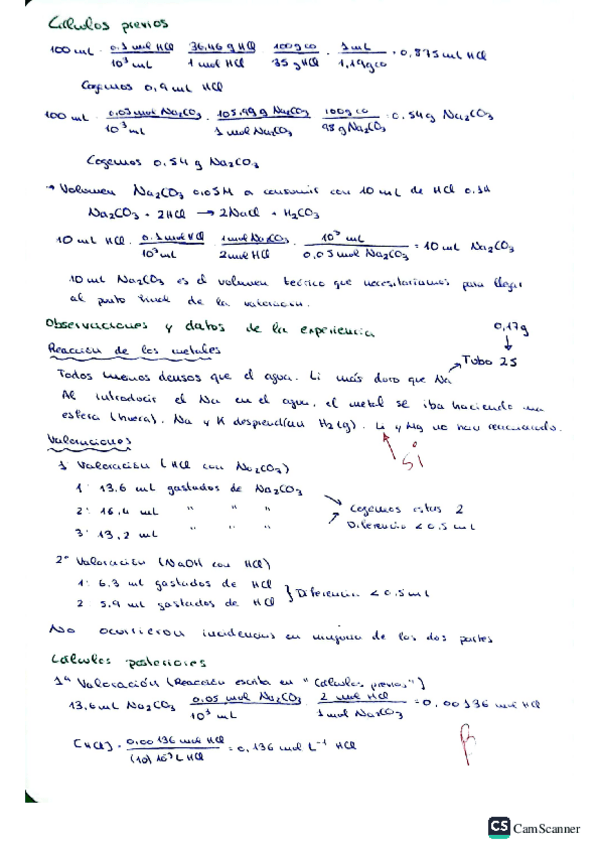 Cálculos previos
100 mL · 0.1 mol HCl / 10³ mL · 36.46 g HCl / 1 mol HCl · 100 g co / 35 g HCl · 1 mL / 1,19 g co = 0,875 mL HCl
Cogemos 0,9 mL HCl
100 mL · 0.05 mol Na₂CO₃ / 10³ mL · 105.99 g Na₂CO₃ / 1 mol Na₂CO₃ · 100g co / 98 g Na₂CO₃ = 0.54 g Na₂CO₃
Cogemos 0.54 g Na₂CO₃
→ Volumen Na₂CO₃ 0.05M a consumir con 10 mL de HCl 0.1M
Na₂CO₃ + 2HCl → 2NaCl + H₂CO₃
10 mL HCl · 0.1 mol HCl / 10³ mL · 1 mol Na₂CO₃ / 2 mol HCl · 10³ mL / 0,05 mol Na₂CO₃ = 10 mL Na₂CO₃
10 mL Na₂CO₃ es el volumen teórico que necesitaríamos para llegar
al punto final de la valoración.
Observaciones y datos de la experiencia
0,17g
↓
Reacción de los metales
Tubo 25
Todos menos densos que el agua. Li más duro que Na
Al introducir el Na en el agua, el metal se iba haciendo una
esfera (huera). Na y K desprendían H₂(g). Li y Mg no han reaccionado.
Sí
Valoraciones
1 Valoración (HCl con Na₂CO₃)
1: 13.6 mL gastados de Na₂CO₃
2: 16.4 mL " " "
3: 13.2 mL " " "
Cogemos estas 2
Diferencia < 0.5 mL
2ª Valoración (NaOH con HCl)
1: 6.3 mL gastados de HCl
2: 5.9 mL gastados de HCl
} Diferencia < 0.5ml
No ocurrieron incidencias en ninguna de las dos partes
Cálculos posteriores
1ª Valoración (Reacción escrita en "Cálculos previos")
13.6 mL Na₂CO₃ · 0.05 mol Na₂CO₃ / 10³ mL · 2 mol HCl / 1 mol Na₂CO₃ = 0,00136 mol HCl
[HCl] = 0.00136 mol HCl / (10) 10⁻³ L HCl = 0,136 mol L⁻¹ HCl
CS CamScanner